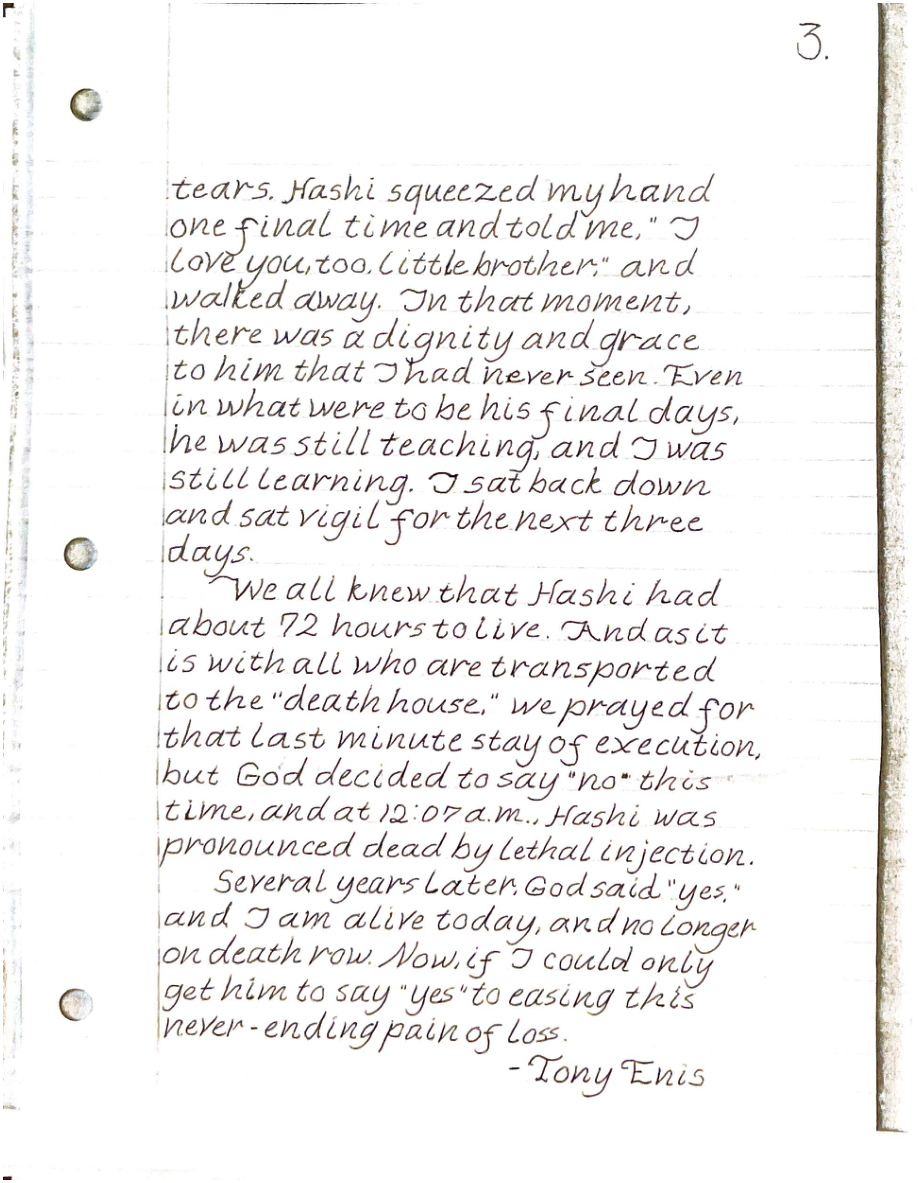 3.
tears. Hashi squeezed my hand
one final time and told me, "I
love you, too, little brother," and
walked away. In that moment,
there was a dignity and grace
to him that I had never seen. Even
in what were to be his final days,
he was still teaching, and I was
still learning. I sat back down
and sat vigil for the next three
days.
We all knew that Hashi had
about 72 hours to live. And as it
is with all who are transported
to the "death house," we prayed for
that last minute stay of execution,
but God decided to say "no" this
time, and at 12:07 a.m., Hashi was
pronounced dead by lethal injection.
Several years later, God said "yes,"
and I am alive today, and no longer
on death row. Now, if I could only
get him to say "yes" to easing this
never-ending pain of loss.
- Tony Enis